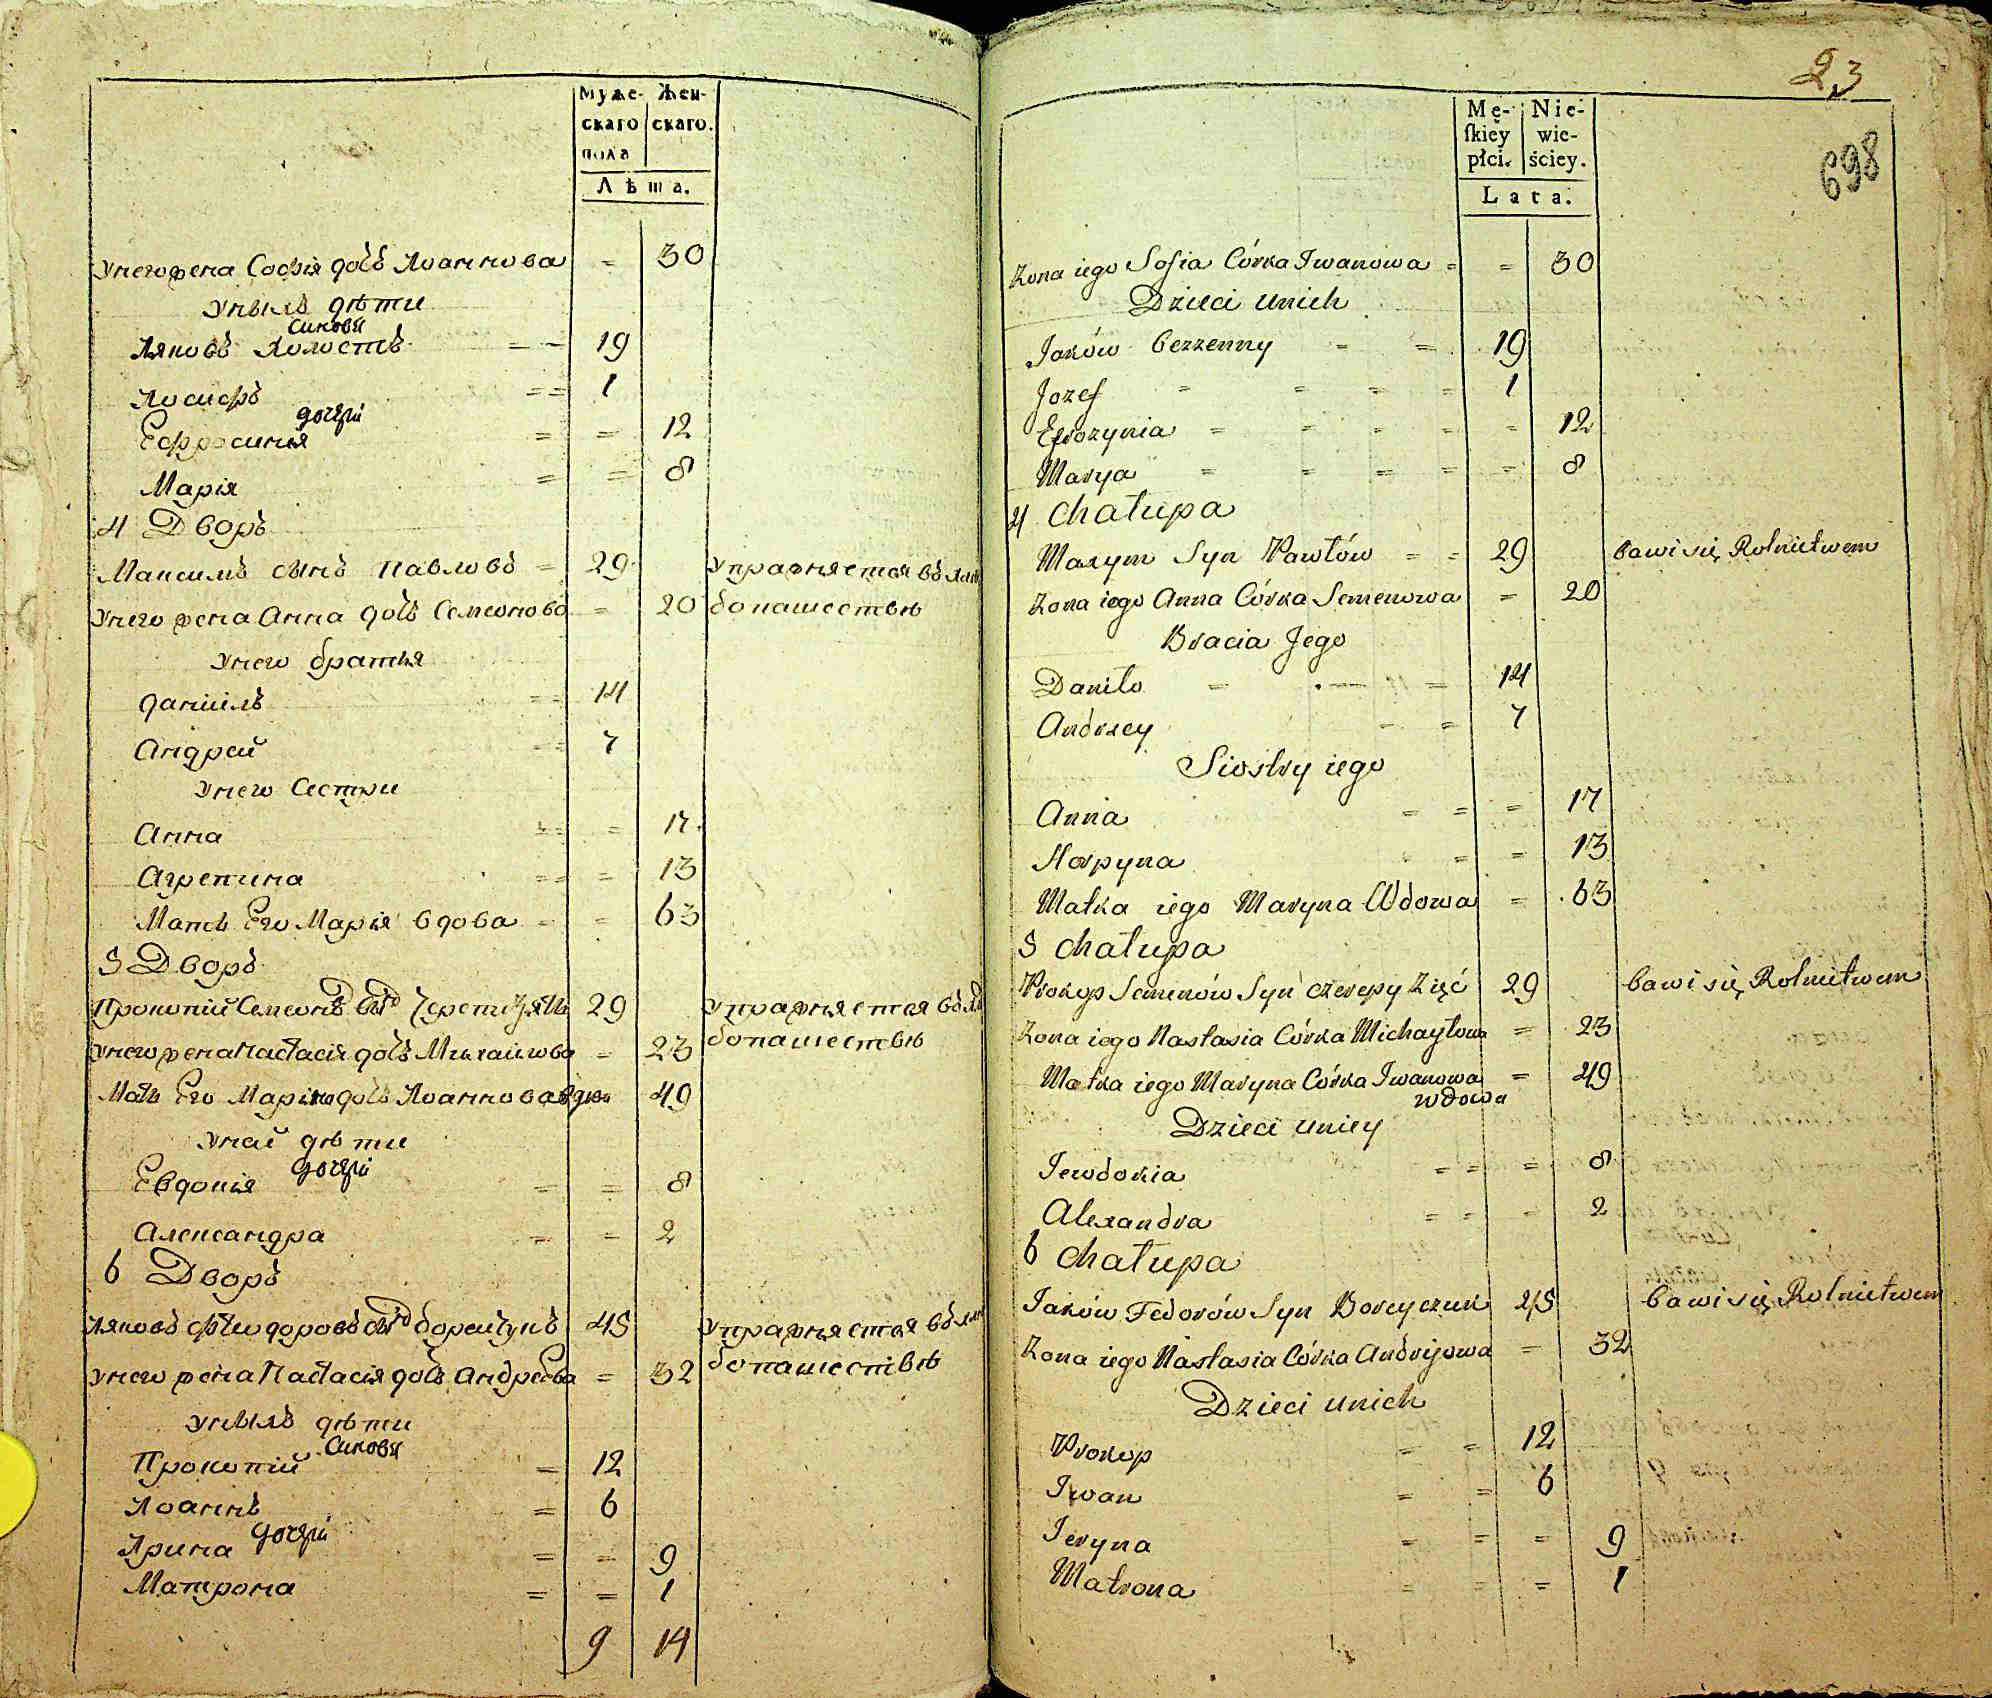 Муже- Жен-
скаго скаго.
пола
Лѣта.
У него жена Софія дочь Иоаннова = 30
У нихъ дѣти
синовя
Ияковъ Холостъ = = 19
Иосифъ = = 1
дочери
Ефросинья = = 12
Марія = = 8
4 Дворъ
Максимъ сынъ Павловъ = 29 упражняется въ хлѣ
У него жена Анна дочь Семионова = 20 бопашествѣ
У него братья
Даніилъ = = 14
Андрей = = 7
У него Сестри
Анна = = = 17
Агрепина = = = 13
Мать Его Марія вдова = = 63
5 Дворъ
Прокопій Семионъ сынъ Черепи Зять 29 упражняется въ хлѣ
У него жена Настасія дочь Михайлова = 23 бопашествѣ
Мать Его Марія дочь Иоаннова вдова 49
У ней дѣти
дочери
Евдокія = = 8
Александра = = 2
6 Дворъ
Ияковъ Феодоровъ сынъ Борейчукъ 45 упражняется въ хлѣ
У него жена Настасія дочь Андреева = 32 бопашествѣ
У нихъ дѣти
Синовя
Прокопій = 12
Иоаннъ = 6
дочери
Ирина = = 9
Матрона = = 1
9 14
23
698
Mę- Nie-
ſkiey wie-
płci. ściey.
Lata.
Zona iego Sofia Córka Iwanowa = = 30
Dzieci unich
Jaków bezzenny = = 19
Jozef = = = = 1
Efrozynia = = = = = 12
Marya = = = = = 8
4 Chałupa
Maxym Syn Pawłów = = 29 bawi się Rolnictwem
Zona iego Anna Córka Semenowa = 20
Bracia Jego
Daniło = = 14
Andrzey = = 7
Siostry iego
Anna = = = 17
Horpyna = = 13
Matka iego Maryna Wdowa = 63
5 Chałupa
Prokop Semenów Syn Czerepy Zięć 29 bawi się Rolnictwem
Zona iego Nastasia Córka Michayłowa = 23
Matka iego Maryna Córka Iwanowa = 49
wdowa
Dzieci uniey
Jewdokia = = = 8
Alexandra = = = 2
6 Chałupa
Jaków Fedorów Syn Boreyczuk 45 bawi się Rolnictwem
Zona iego Nastasia Córka Andrijowa = 32
Dzieci unich
Prokop = = 12
Iwan = = 6
Jeryna = = = 9
Matrona = = = 1